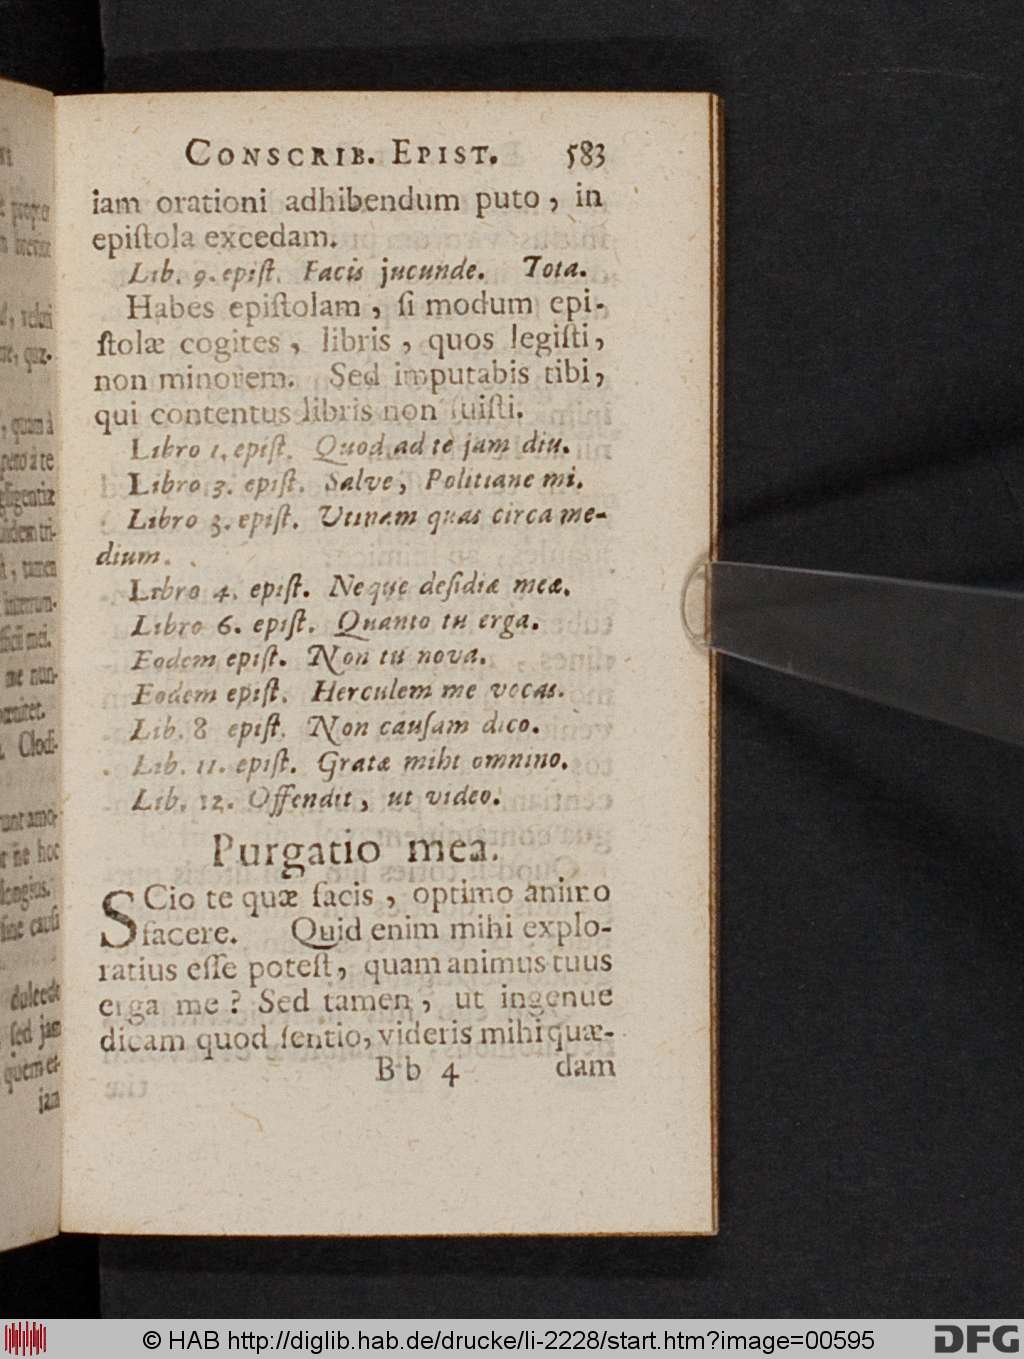 CONSCRIB. EPIST. 583
iam orationi adhibendum puto, in
epiſtola excedam.
Lib. 9. epiſt. Facis jucunde. Tota.
Habes epiſtolam, ſi modum epi-
ſtolæ cogites, libris, quos legiſti,
non minorem. Sed imputabis tibi,
qui contentus libris non fuiſti.
Libro 1. epiſt. Quod ad te jam diu.
Libro 3. epiſt. Salve, Politiane mi.
Libro 3. epiſt. Utinam quas circa me-
dium.
Libro 4. epiſt. Neque deſidiæ meæ.
Libro 6. epiſt. Quanto tu erga.
Eodem epiſt. Non tu nova.
Eodem epiſt. Herculem me vocas.
Lib. 8 epiſt. Non cauſam dico.
Lib. 11. epiſt. Gratæ mihi omnino.
Lib. 12. Offendit, ut video.
Purgatio mea.
SCio te quæ facis, optimo animo
facere. Quid enim mihi explo-
ratius eſſe poteſt, quam animus tuus
erga me? Sed tamen, ut ingenue
dicam quod ſentio, videris mihi quæ-
Bb 4 dam
© HAB http://diglib.hab.de/drucke/li-2228/start.htm?image=00595
DFG